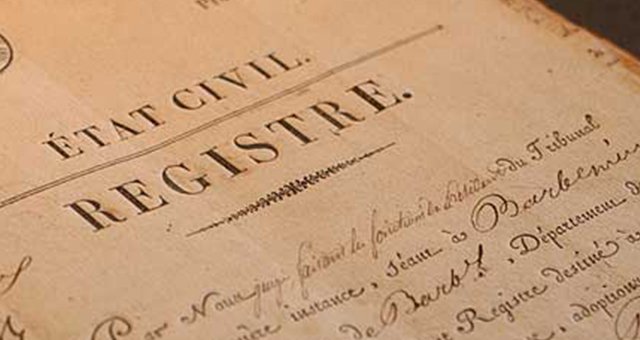 ÉTAT CIVIL.
REGISTRE.
Par Nous juge faisant les fonctions de du Tribunal
instance, séant à
de Barby, Département
Registre destiné à
adoption